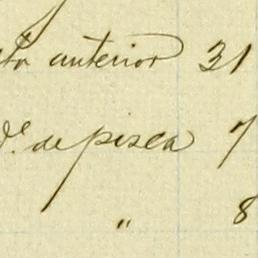 anterior 31
de pisca 7
" 8